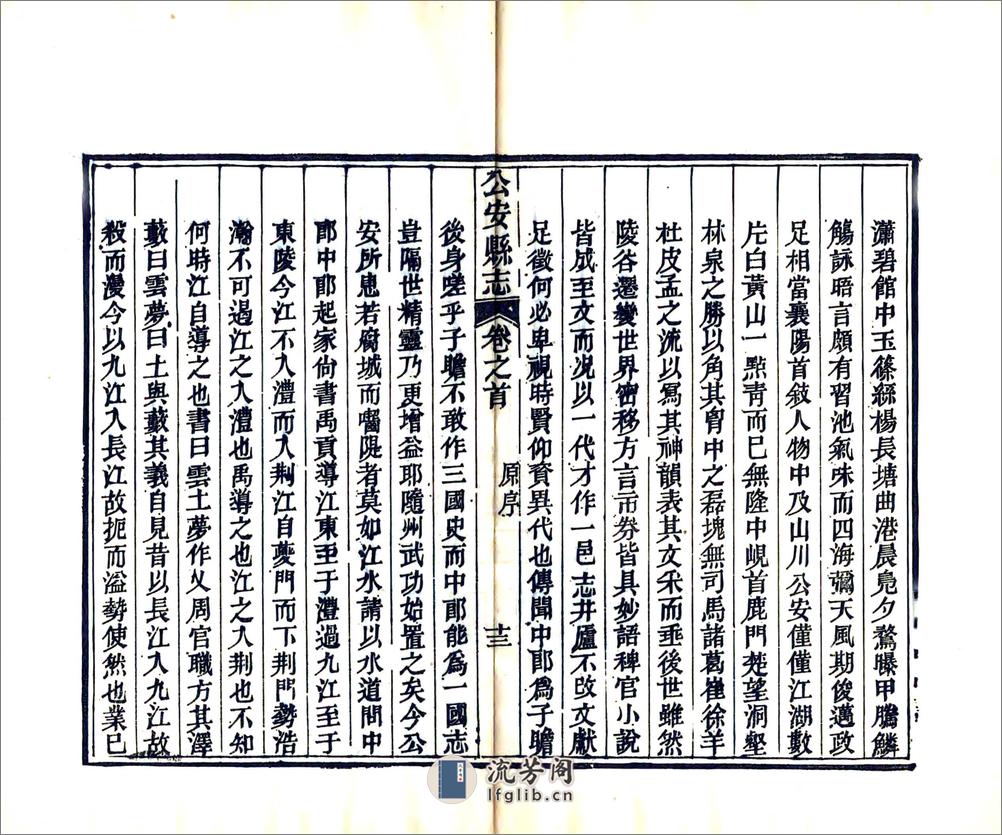 瀟碧館中玉篠繇楊長塘曲港晨鳧夕鶩曝甲騰鱗
觴詠晤言頗有習池氣味而四海彌天風期俊邁政
足相當襄陽首敍人物中及山川公安僅僅江湖數
片白黃山一㸃靑而已無隆中峴首鹿門楚望洞壑
林泉之勝以角其胷中之磊塊無司馬諸葛崔徐羊
杜皮孟之流以寫其神韻表其文采而垂後世雖然
陵谷遷變世界密移方言市劵皆具妙語稗官小說
皆成至文而况以一代才作一邑志井廬不改文獻
足徵何必卑視時賢仰資異代也傳聞中郞爲子瞻
公安縣志
卷之首
原序
十三
後身嗟乎子瞻不敢作三國史而中郞能爲一國志
豈隔世精靈乃更增益耶隨州武功始置之矣今公
安所患若腐城而囓隄者莫如江水請以水道問中
郞中郞起家尙書禹貢導江東至于澧過九江至于
東陵今江不入澧而入荆江自夔門而下荆門勢浩
瀚不可遏江之入澧也禹導之也江之入荆也不知
何時江自導之也書曰雲土夢作乂周官職方其澤
藪曰雲夢曰土與藪其義自見昔以長江入九江故
殺而漫今以九江入長江故扼而溢勢使然也業已
流芳阁
lfglib.cn